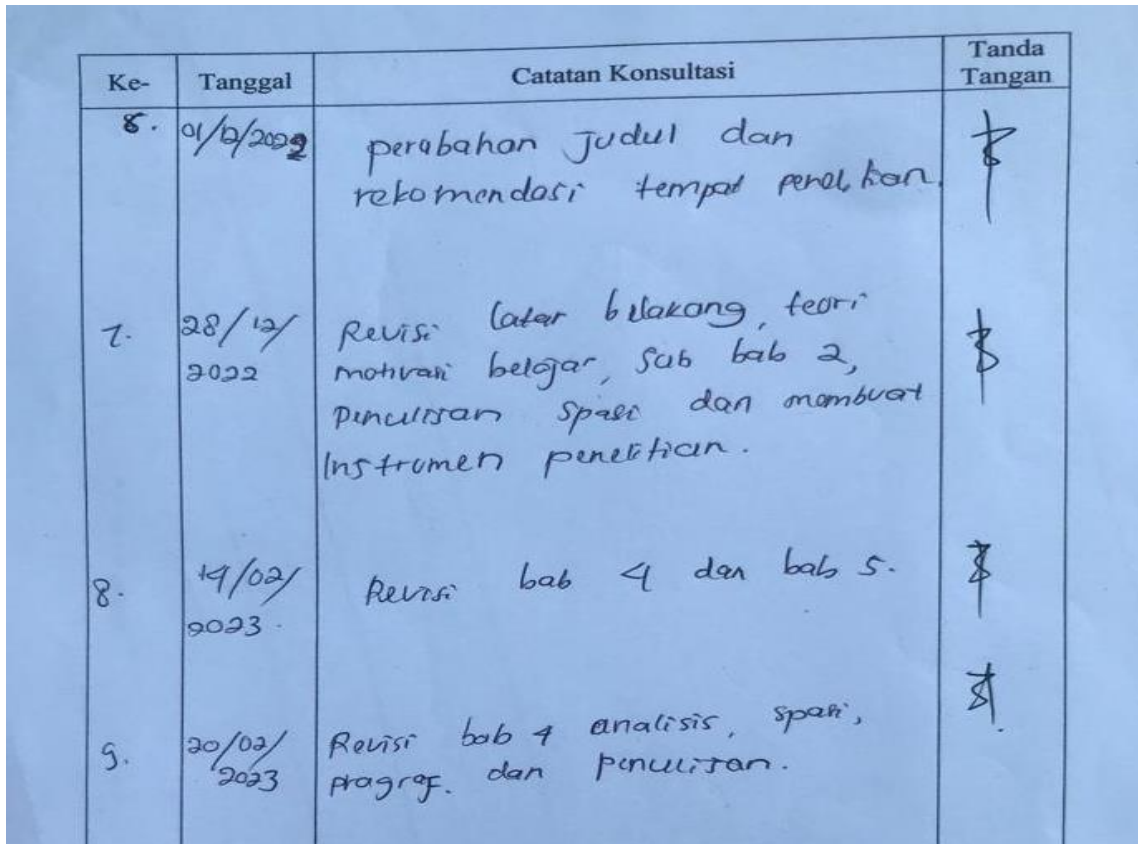 Ke- Tanggal Catatan Konsultasi Tanda Tangan
8. 01/12/2022 perubahan Judul dan
rekomendasi tempat
7. 28/12/ Revisi latar belakang, teori
2022 motivasi belajar, Sub bab 2,
Penulisan Spasi dan membuat
Instrumen penelitian.
8. 14/02/ Revisi bab 4 dan bab 5.
2023.
9. 20/02/ Revisi bab 4 analisis, spasi,
2023 pragraf. dan penulisan.